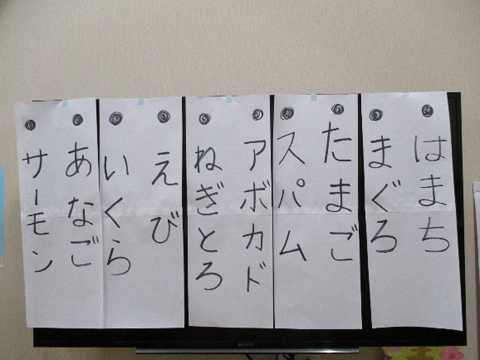 ◎はまち
◎まぐろ
◎たまご
◎スパム
◎アボカド
◎ねぎとろ
◎えび
◎いくら
◎あなご
◎サーモン
SONY